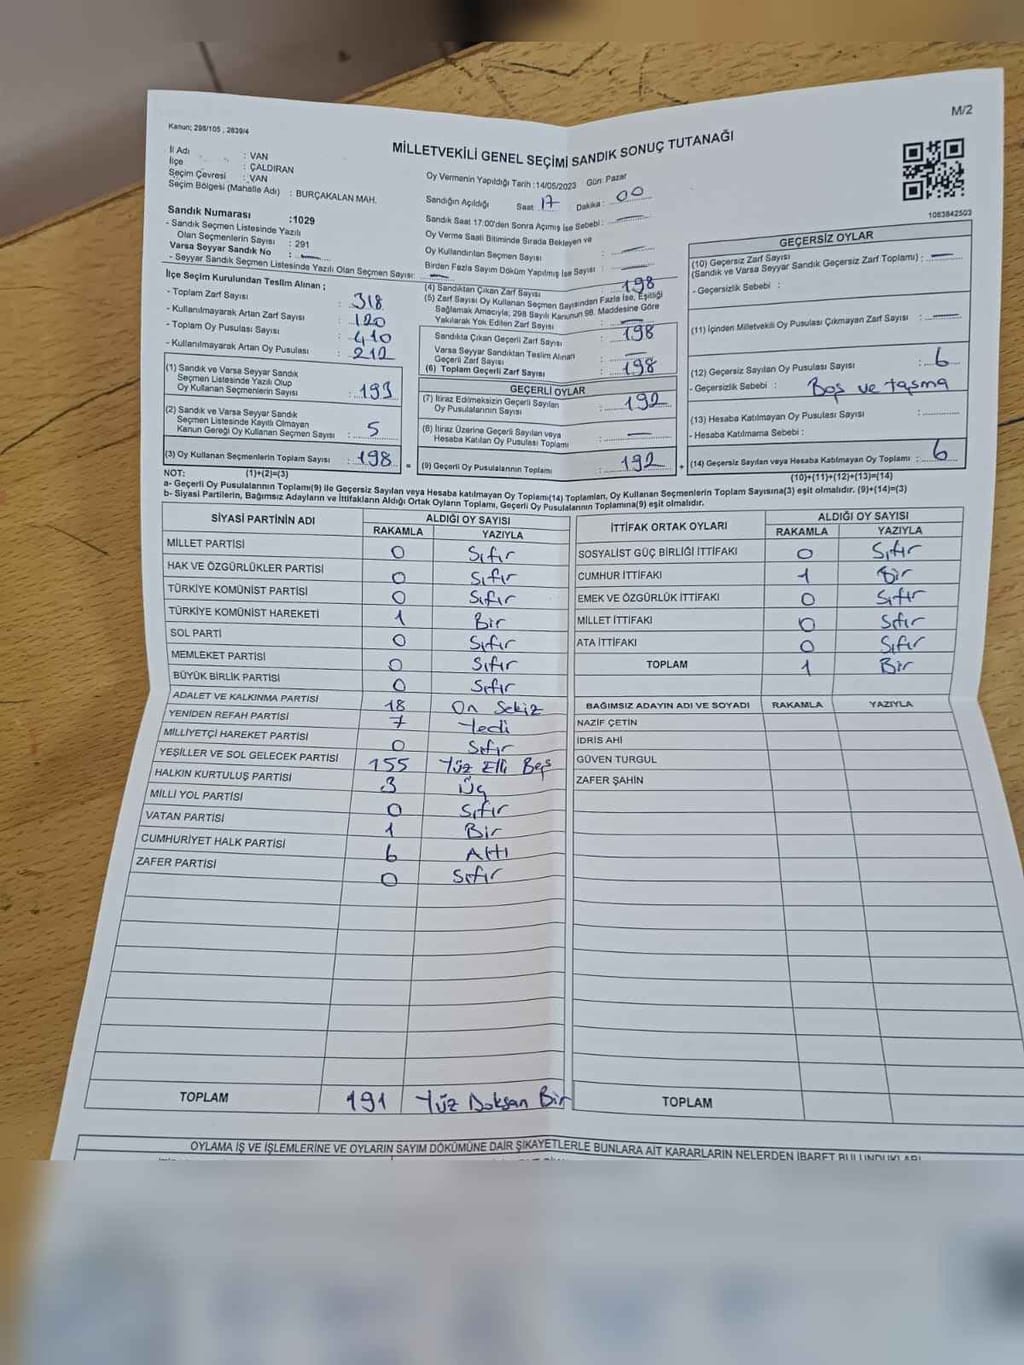 M/2
Kanun; 298/105 , 2839/4
MİLLETVEKİLİ GENEL SEÇİMİ SANDIK SONUÇ TUTANAĞI
1083842503
İl Adı : VAN
İlçe : ÇALDIRAN
Seçim Çevresi : VAN
Seçim Bölgesi (Mahalle Adı) : BURÇAKALAN MAH.
Sandık Numarası :1029
- Sandık Seçmen Listesinde Yazılı
Olan Seçmenlerin Sayısı : 291
Varsa Seyyar Sandık No : —
- Seyyar Sandık Seçmen Listesinde Yazılı Olan Seçmen Sayısı: —
Oy Vermenin Yapıldığı Tarih :14/05/2023 Gün: Pazar
Sandığın Açıldığı Saat 17 Dakika : 00
Sandık Saat 17:00'den Sonra Açımış İse Sebebi : —
Oy Verme Saati Bitiminde Sırada Bekleyen ve
Oy Kullandırılan Seçmen Sayısı : —
Birden Fazla Sayım Döküm Yapılmış İse Sayısı : —
İlçe Seçim Kurulundan Teslim Alınan ;
- Toplam Zarf Sayısı : 318
- Kullanılmayarak Artan Zarf Sayısı : 120
- Toplam Oy Pusulası Sayısı : 410
- Kullanılmayarak Artan Oy Pusulası : 212
(1) Sandık ve Varsa Seyyar Sandık
Seçmen Listesinde Yazılı Olup
Oy Kullanan Seçmenlerin Sayısı : 193
(2) Sandık ve Varsa Seyyar Sandık
Seçmen Listesinde Kayıtlı Olmayan
Kanun Gereği Oy Kullanan Seçmen Sayısı : 5
(3) Oy Kullanan Seçmenlerin Toplam Sayısı : 198
(4) Sandıktan Çıkan Zarf Sayısı : 198
(5) Zarf Sayısı Oy Kullanan Seçmen Sayısından Fazla İse, Eşitliği
Sağlamak Amacıyla; 298 Sayılı Kanunun 98. Maddesine Göre
Yakılarak Yok Edilen Zarf Sayısı : —
Sandıkta Çıkan Geçerli Zarf Sayısı : 198
Varsa Seyyar Sandıktan Teslim Alınan
Geçerli Zarf Sayısı : —
(6) Toplam Geçerli Zarf Sayısı : 198
GEÇERLİ OYLAR
(7) İtiraz Edilmeksizin Geçerli Sayılan
Oy Pusulalarının Sayısı : 192
(8) İtiraz Üzerine Geçerli Sayılan veya
Hesaba Katılan Oy Pusulası Toplamı : —
(9) Geçerli Oy Pusulalarının Toplamı : 192
GEÇERSİZ OYLAR
(10) Geçersiz Zarf Sayısı
(Sandık ve Varsa Seyyar Sandık Geçersiz Zarf Toplamı) : —
- Geçersizlik Sebebi :
(11) İçinden Milletvekili Oy Pusulası Çıkmayan Zarf Sayısı : —
(12) Geçersiz Sayılan Oy Pusulası Sayısı : 6
- Geçersizlik Sebebi : Boş ve taşma
(13) Hesaba Katılmayan Oy Pusulası Sayısı :
- Hesaba Katılmama Sebebi :
(14) Geçersiz Sayılan veya Hesaba Katılmayan Oy Toplamı : 6
NOT: (1)+(2)=(3)
(10)+(11)+(12)+(13)=(14)
a- Geçerli Oy Pusulalarının Toplamı(9) ile Geçersiz Sayılan veya Hesaba katılmayan Oy Toplamı(14) Toplamları, Oy Kullanan Seçmenlerin Toplam Sayısına(3) eşit olmalıdır. (9)+(14)=(3)
b- Siyasi Partilerin, Bağımsız Adayların ve İttifakların Aldığı Ortak Oyların Toplamı, Geçerli Oy Pusulalarının Toplamına(9) eşit olmalıdır.
SİYASİ PARTİNİN ADI ALDIĞI OY SAYISI
RAKAMLA YAZIYLA
MİLLET PARTİSİ 0 Sıfır
HAK VE ÖZGÜRLÜKLER PARTİSİ 0 Sıfır
TÜRKİYE KOMÜNİST PARTİSİ 0 Sıfır
TÜRKİYE KOMÜNİST HAREKETİ 1 Bir
SOL PARTİ 0 Sıfır
MEMLEKET PARTİSİ 0 Sıfır
BÜYÜK BİRLİK PARTİSİ 0 Sıfır
ADALET VE KALKINMA PARTİSİ 18 On Sekiz
YENİDEN REFAH PARTİSİ 7 Yedi
MİLLİYETÇİ HAREKET PARTİSİ 0 Sıfır
YEŞİLLER VE SOL GELECEK PARTİSİ 155 Yüz Elli Beş
HALKIN KURTULUŞ PARTİSİ 3 Üç
MİLLİ YOL PARTİSİ 0 Sıfır
VATAN PARTİSİ 1 Bir
CUMHURİYET HALK PARTİSİ 6 Altı
ZAFER PARTİSİ 0 Sıfır
TOPLAM 191 Yüz Doksan Bir
İTTİFAK ORTAK OYLARI ALDIĞI OY SAYISI
RAKAMLA YAZIYLA
SOSYALİST GÜÇ BİRLİĞİ İTTİFAKI 0 Sıfır
CUMHUR İTTİFAKI 1 Bir
EMEK VE ÖZGÜRLÜK İTTİFAKI 0 Sıfır
MİLLET İTTİFAKI 0 Sıfır
ATA İTTİFAKI 0 Sıfır
TOPLAM 1 Bir
BAĞIMSIZ ADAYIN ADI VE SOYADI RAKAMLA YAZIYLA
NAZİF ÇETİN
İDRİS AHİ
GÜVEN TURGUL
ZAFER ŞAHİN
TOPLAM
OYLAMA İŞ VE İŞLEMLERİNE VE OYLARIN SAYIM DÖKÜMÜNE DAİR ŞİKAYETLERLE BUNLARA AİT KARARLARIN NELERDEN İBARET BULUNDUKLARI